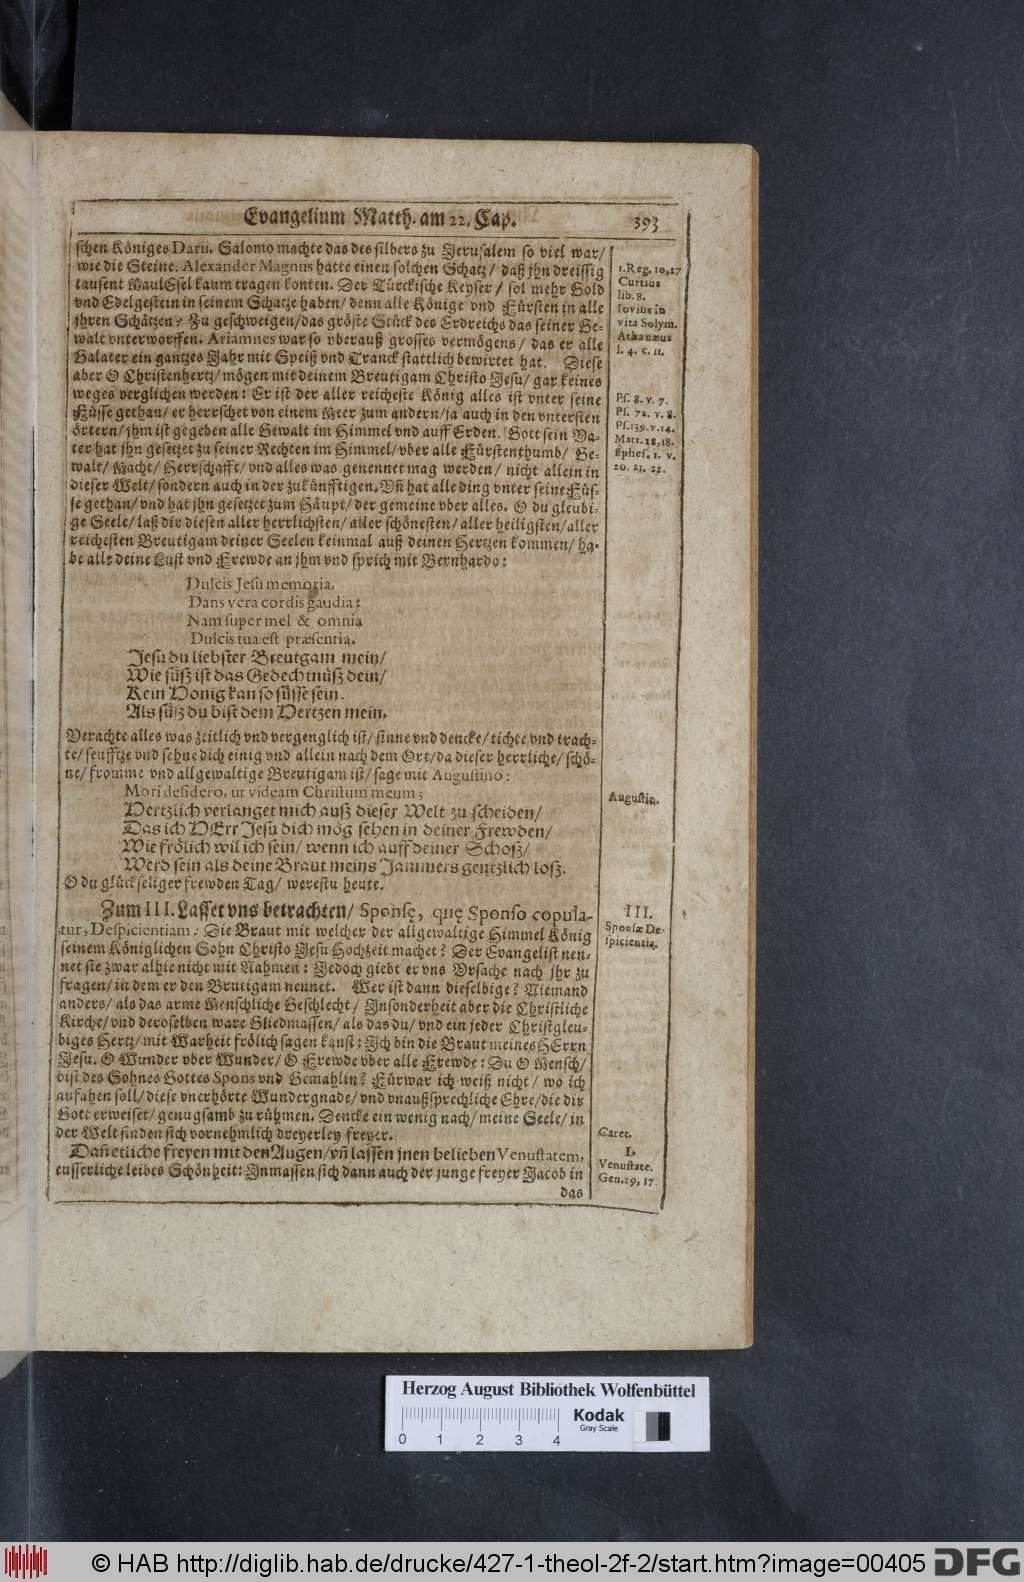 Evangelium Matth. am 22. Cap. 393
schen Königes Darii. Salomo machte das des silbers zu Jerusalem so viel war/
wie die Steine. Alexander Magnus hatte einen solchen Schatz/ daß jhn dreissig
tausent MaulEsel kaum tragen konten. Der Türckische Keyser/ sol mehr Gold
vnd Edelgestein in seinem Schatze haben/ denn alle Könige vnd Fürsten in alle
jhren Schätzen: Zu geschweigen/ das gröste Stück des Erdreichs das seiner Ge-
walt vnterworffen. Ariamnes war so vberauß grosses vermögens/ das er alle
Galater ein gantzes Jahr mit Speiß vnd Tranck stattlich bewirtet hat. Diese
aber O Christenhertz/ mögen mit deinem Breutigam Christo Jesu/ gar keines
weges verglichen werden: Er ist der aller reicheste König alles ist vnter seine
Füsse gethan/ er herrschet von einem Meer zum andern/ ja auch in den vntersten
örtern/ jhm ist gegeben alle Gewalt im Himmel vnd auff Erden. Gott sein Va-
ter hat jhn gesetzet zu seiner Rechten im Himmel/ vber alle Fürstenthumb/ Ge-
walt/ Macht/ Herrschafft/ vnd alles was genennet mag werden/ nicht allein in
dieser Welt/ sondern auch in der zukünfftigen. Vñ hat alle ding vnter seine Füs-
se gethan/ vnd hat jhn gesetzet zum Häupt/ der gemeine vber alles. O du gleubi-
ge Seele/ laß dir diesen aller herrlichsten/ aller schönesten/ aller heiligsten/ aller
reichesten Breutigam deiner Seelen keinmal auß deinen Hertzen kommen/ ha-
be alle deine Lust vnd Frewde an jhm vnd sprich mit Bernhardo:
Dulcis Jesu memoria,
Dans vera cordis gaudia:
Nam super mel & omnia
Dulcis tua est præsentia.
Jesu du liebster Breutgam mein/
Wie süß ist das Gedechtnüß dein/
Kein Honig kan so süsse sein.
Als süß du bist dem Hertzen mein.
Verachte alles was zeitlich vnd vergenglich ist/ sinne vnd dencke/ tichte vnd trach-
te/ seufftze vnd sehne dich einig vnd allein nach dem Ort/ da dieser herrliche/ schö-
ne/ fromme vnd allgewaltige Breutigam ist/ sage mit Augustino:
Mori desidero, ut videam Christum meum;
Hertzlich verlanget mich auß dieser Welt zu scheiden/
Das ich HErr Jesu dich mög sehen in deiner Frewden/
Wie frölich wil ich sein/ wenn ich auff deiner Schoß/
Werd sein als deine Braut meins Jammers gentzlich loß.
O du glückseliger frewden Tag/ werestu heute.
Zum III. Lasset vns betrachten/ Sponsę, quę Sponso copula-
tur, Despicientiam: Die Braut mit welcher der allgewaltige Himmel König
seinem Königlichen Sohn Christo Jesu Hochzeit machet? Der Evangelist nen-
net sie zwar alhie nicht mit Nahmen: Jedoch giebt er vns Vrsache nach jhr zu
fragen/ in dem er den Brutigam nennet. Wer ist dann dieselbige? Niemand
anders/ als das arme Menschliche Geschlecht/ Insonderheit aber die Christliche
Kirche/ vnd deroselben ware Gliedmassen/ als das du/ vnd ein jeder Christgleu-
biges Hertz/ mit Warheit frölich sagen kanst: Ich bin die Braut meines HErrn
Jesu. O Wunder vber Wunder/ O Frewde vber alle Frewde: Du O Mensch/
bist des Sohnes Gottes Spons vnd Gemahlin? Fürwar ich weiß nicht/ wo ich
anfahen soll/ diese vnerhörte Wundergnade/ vnd vnaußsprechliche Ehre/ die dir
Gott erweiset/ genugsamb zu rühmen. Dencke ein wenig nach/ meine Seele/ in
der Welt finden sich vornehmlich dreyerley freyer.
Dañ etliche freyen mit den Augen/ vñ lassen jnen belieben Venustatem,
eusserliche leibes Schönheit: Inmassen sich dann auch der junge freyer Jacob in
das
1. Reg. 10, 27
Curtius
lib. 8.
Iovius in
vita Solym.
Athanæus
l. 4. c. 11.
Ps. 8. v. 7.
Ps. 72. v. 8.
Ps. 139. v. 14.
Matt. 28, 18.
Ephes. 1. v.
20. 21. 22.
Augustin.
III.
Sponsæ De-
spicientia.
Caret.
I.
Venustate.
Gen. 29, 17
Herzog August Bibliothek Wolfenbüttel
Kodak
Gray Scale
0 1 2 3 4
© HAB http://diglib.hab.de/drucke/427-1-theol-2f-2/start.htm?image=00405 DFG